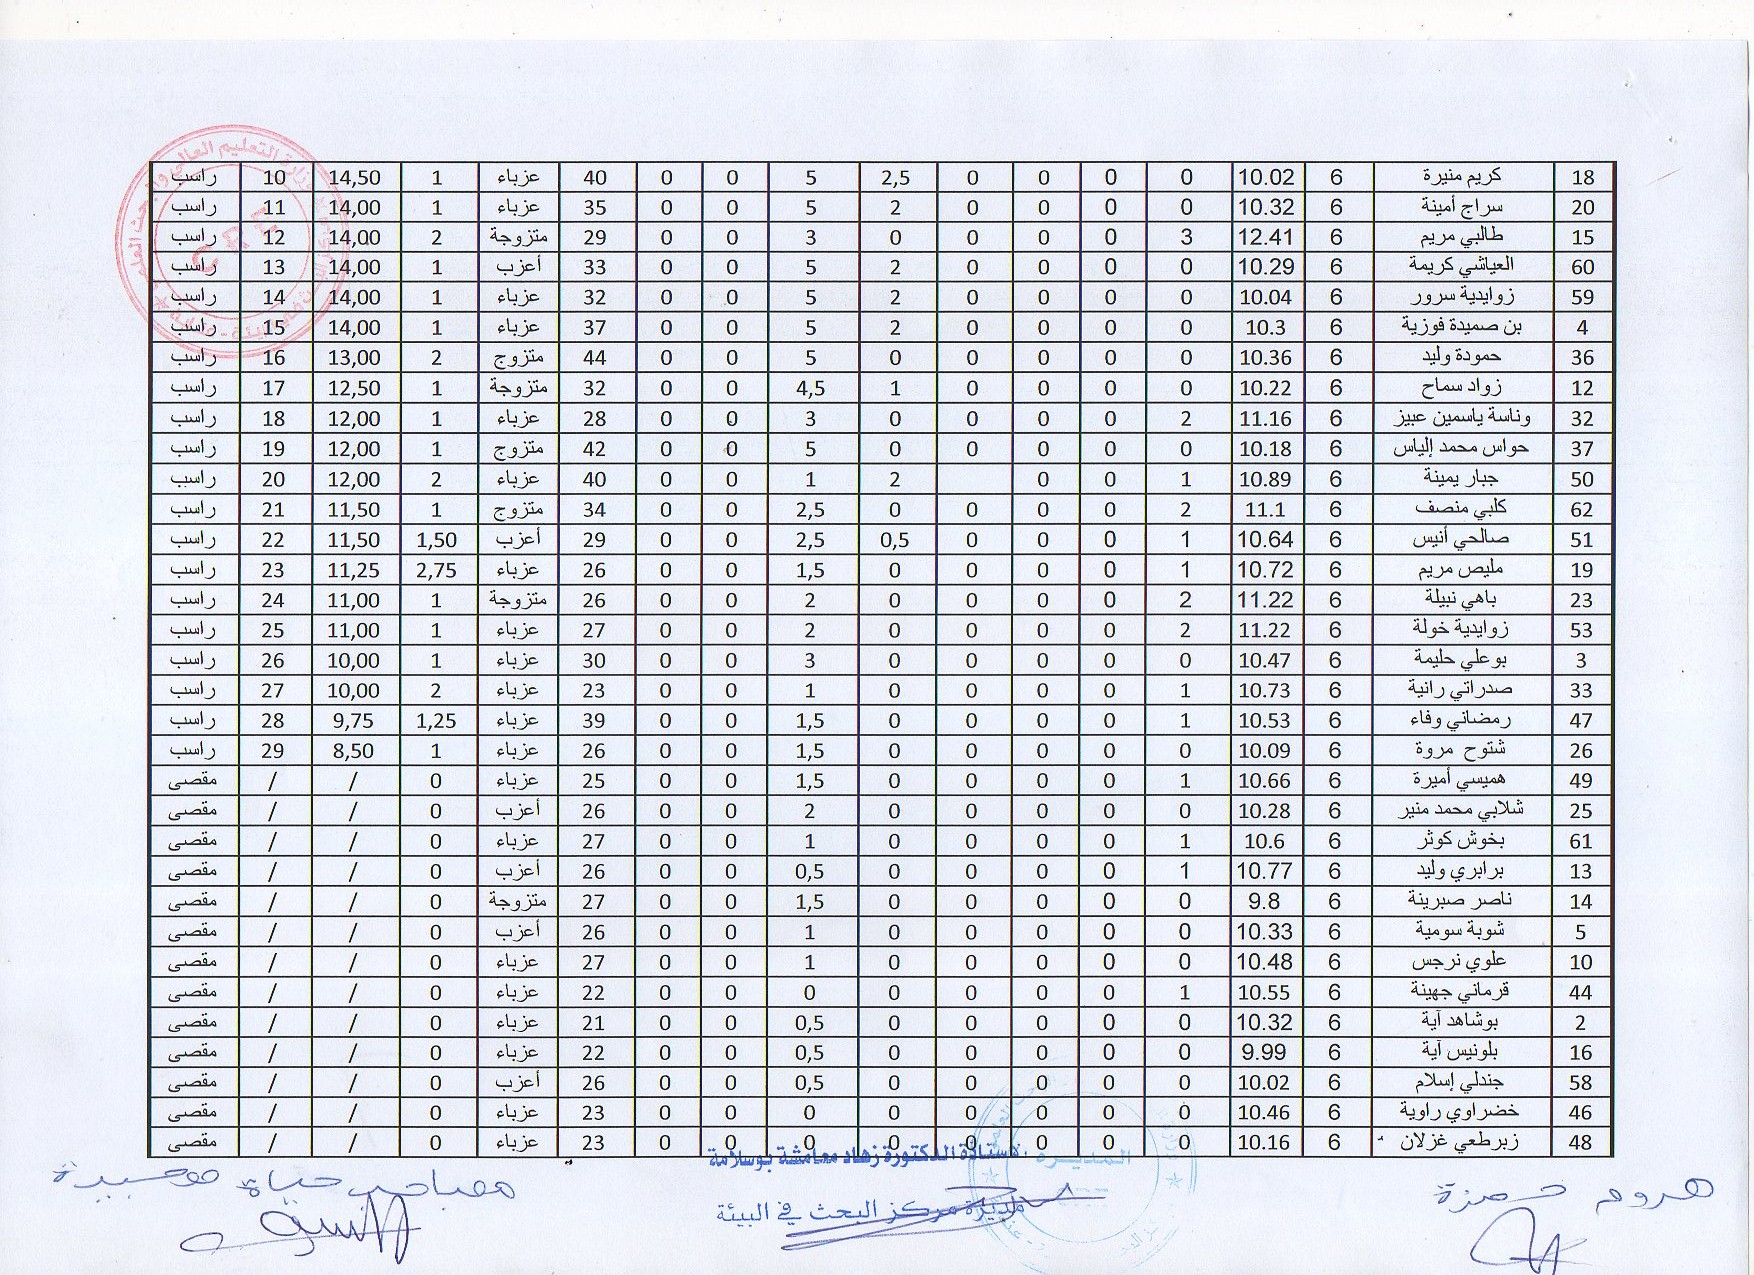 18 كريم منيرة 6 10.02 0 0 0 0 2,5 5 0 0 40 عزباء 1 14,50 10 راسب
20 سراج أمينة 6 10.32 0 0 0 0 2 5 0 0 35 عزباء 1 14,00 11 راسب
15 طالبي مريم 6 12.41 3 0 0 0 0 3 0 0 29 متزوجة 2 14,00 12 راسب
60 العياشي كريمة 6 10.29 0 0 0 0 2 5 0 0 33 أعزب 1 14,00 13 راسب
59 زوايدية سرور 6 10.04 0 0 0 0 2 5 0 0 32 عزباء 1 14,00 14 راسب
4 بن صميدة فوزية 6 10.3 0 0 0 0 2 5 0 0 37 عزباء 1 14,00 15 راسب
36 حمودة وليد 6 10.36 0 0 0 0 0 5 0 0 44 متزوج 2 13,00 16 راسب
12 زواد سماح 6 10.22 0 0 0 0 1 4,5 0 0 32 متزوجة 1 12,50 17 راسب
32 وناسة ياسمين عبيز 6 11.16 2 0 0 0 0 3 0 0 28 عزباء 1 12,00 18 راسب
37 حواس محمد إلياس 6 10.18 0 0 0 0 0 5 0 0 42 متزوج 1 12,00 19 راسب
50 جبار يمينة 6 10.89 1 0 0 2 1 0 0 40 عزباء 2 12,00 20 راسب
62 كلبي منصف 6 11.1 2 0 0 0 0 2,5 0 0 34 متزوج 1 11,50 21 راسب
51 صالحي أنيس 6 10.64 1 0 0 0 0,5 2,5 0 0 29 أعزب 1,50 11,50 22 راسب
19 مليص مريم 6 10.72 1 0 0 0 0 1,5 0 0 26 عزباء 2,75 11,25 23 راسب
23 باهي نبيلة 6 11.22 2 0 0 0 0 2 0 0 26 متزوجة 1 11,00 24 راسب
53 زوايدية خولة 6 11.22 2 0 0 0 0 2 0 0 27 عزباء 1 11,00 25 راسب
3 بوعلي حليمة 6 10.47 0 0 0 0 0 3 0 0 30 عزباء 1 10,00 26 راسب
33 صدراتي رانية 6 10.73 1 0 0 0 0 1 0 0 23 عزباء 2 10,00 27 راسب
47 رمضاني وفاء 6 10.53 1 0 0 0 0 1,5 0 0 39 عزباء 1,25 9,75 28 راسب
26 شتوح مروة 6 10.09 0 0 0 0 0 1,5 0 0 26 عزباء 1 8,50 29 راسب
49 هميسي أميرة 6 10.66 1 0 0 0 0 1,5 0 0 25 عزباء 0 / / مقصى
25 شلابي محمد منير 6 10.28 0 0 0 0 0 2 0 0 26 أعزب 0 / / مقصى
61 بخوش كوثر 6 10.6 1 0 0 0 0 1 0 0 27 عزباء 0 / / مقصى
13 برابري وليد 6 10.77 1 0 0 0 0 0,5 0 0 26 أعزب 0 / / مقصى
14 ناصر صبرينة 6 9.8 0 0 0 0 0 1,5 0 0 27 متزوجة 0 / / مقصى
5 شوبة سومية 6 10.33 0 0 0 0 0 1 0 0 26 أعزب 0 / / مقصى
10 علوي نرجس 6 10.48 0 0 0 0 0 1 0 0 27 عزباء 0 / / مقصى
44 قرماني جهينة 6 10.55 1 0 0 0 0 0 0 0 22 عزباء 0 / / مقصى
2 بوشاهد آية 6 10.32 0 0 0 0 0 0,5 0 0 21 عزباء 0 / / مقصى
16 بلونيس آية 6 9.99 0 0 0 0 0 0,5 0 0 22 عزباء 0 / / مقصى
58 جندلي إسلام 6 10.02 0 0 0 0 0 0,5 0 0 26 أعزب 0 / / مقصى
46 خضراوي راوية 6 10.46 0 0 0 0 0 0 0 0 23 عزباء 0 / / مقصى
48 زبرطعي غزلان 6 10.16 0 0 0 0 0 0 0 0 23 عزباء 0 / / مقصى
وزارة التعليم العالي والبحث العلمي
C R E
المديرة
الدكتورة زهاد معامشة بوسلامة
مديرة مركز البحث في البيئة
حياة
حمزة